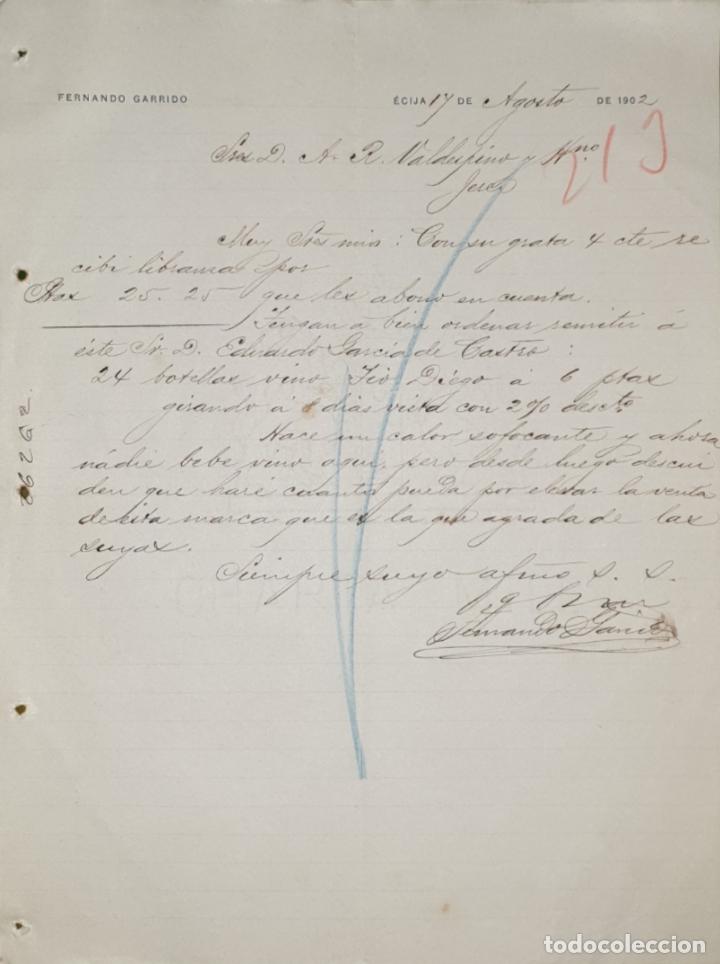 FERNANDO GARRIDO ÉCIJA 17 DE Agosto DE 1902
213
Sres D. A. R. Valdespino y Hno
Jerez
Muy Sres mios: Con su grata 4 cte re
cibi libranza por
Ptas 25.25 que les abono en cuenta.
Tengan á bien ordenar remitir á
éste Sr. D. Eduardo García de Castro:
24 botellas vino Tio Diego á 6 ptas
girando á 8 dias vista con 2% descto
Hace un calor sofocante y ahora
nádie bebe vino aqui, pero desde luego descui
den que haré cuanto pueda por elevar la venta
de esta marca que es la que agrada de las
suyas.
Siempre suyo afmo s. s.
Fernando Garrido
todocoleccion